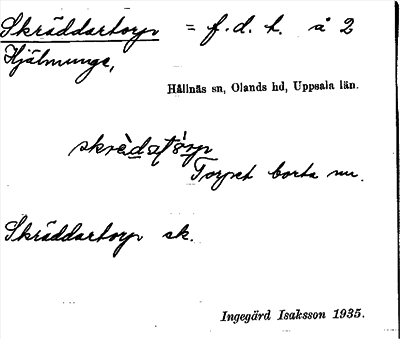 Skräddartorp = f. d. t. å 2
Hjälmunge,
Hållnäs sn, Olands hd, Uppsala län.
Torpet borta nu.
Skräddartorp sk.
Ingegärd Isaksson 1935.